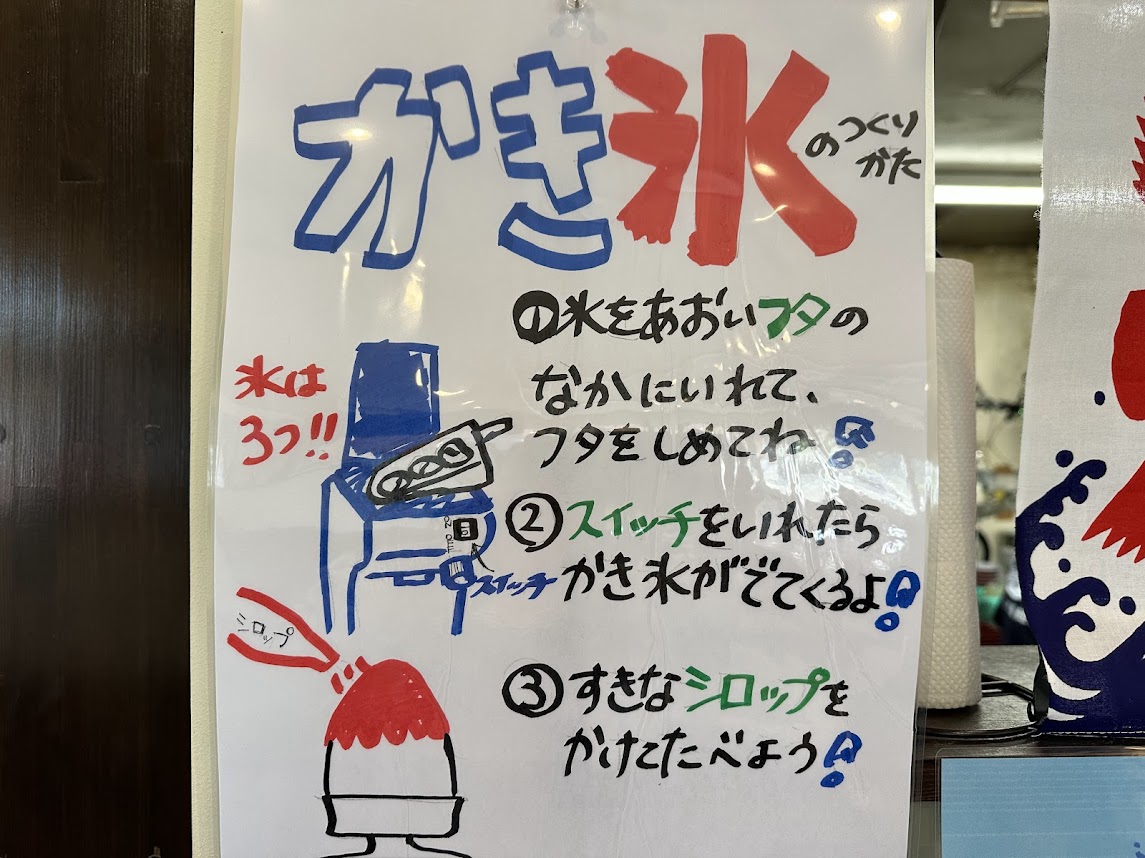 かき氷のつくり
かた
①氷をあおいフタの
なかにいれて、
フタをしめてね!
氷は
3つ!!
②スイッチをいれたら
かき氷がでてくるよ!
スイッチ
③すきなシロップを
かけてたべよう!
シロップ